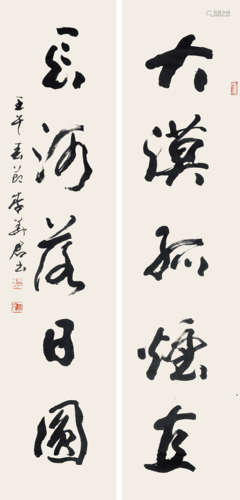 大漠孤煙直
長河落日圓
壬午春節李君書